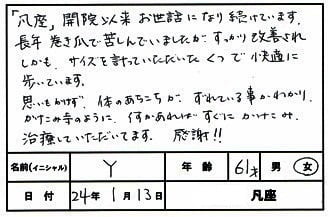 「凡座」開院以来 お世話になり続けています。
長年 巻き爪で苦しんでいましたが すっかり改善され
しかも、サイズを計っていただいた くつ で 快適に
歩いています。
思いもかけず、体のあちこちが、ずれている事がわかり、
かけこみ寺のように、何かあればすぐに かけこみ
治療していただいてます。 感謝!!
名前(イニシャル) Y 年齢 61才 男 女
日付 24年 1月 13日 凡座